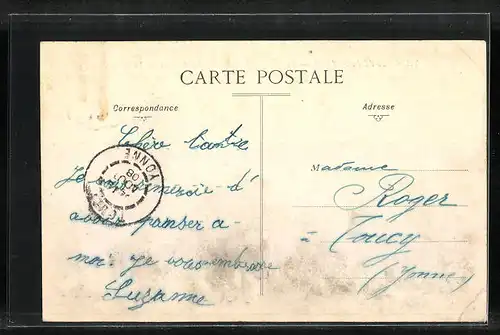 CARTE POSTALE
Correspondance
Adresse
Chère tante
Je vous remercie d'
avoir panser a
moi. Je vous embrasse
Suzanne
Madame
Roger
à Toucy
(Yonne)
YONNE
08